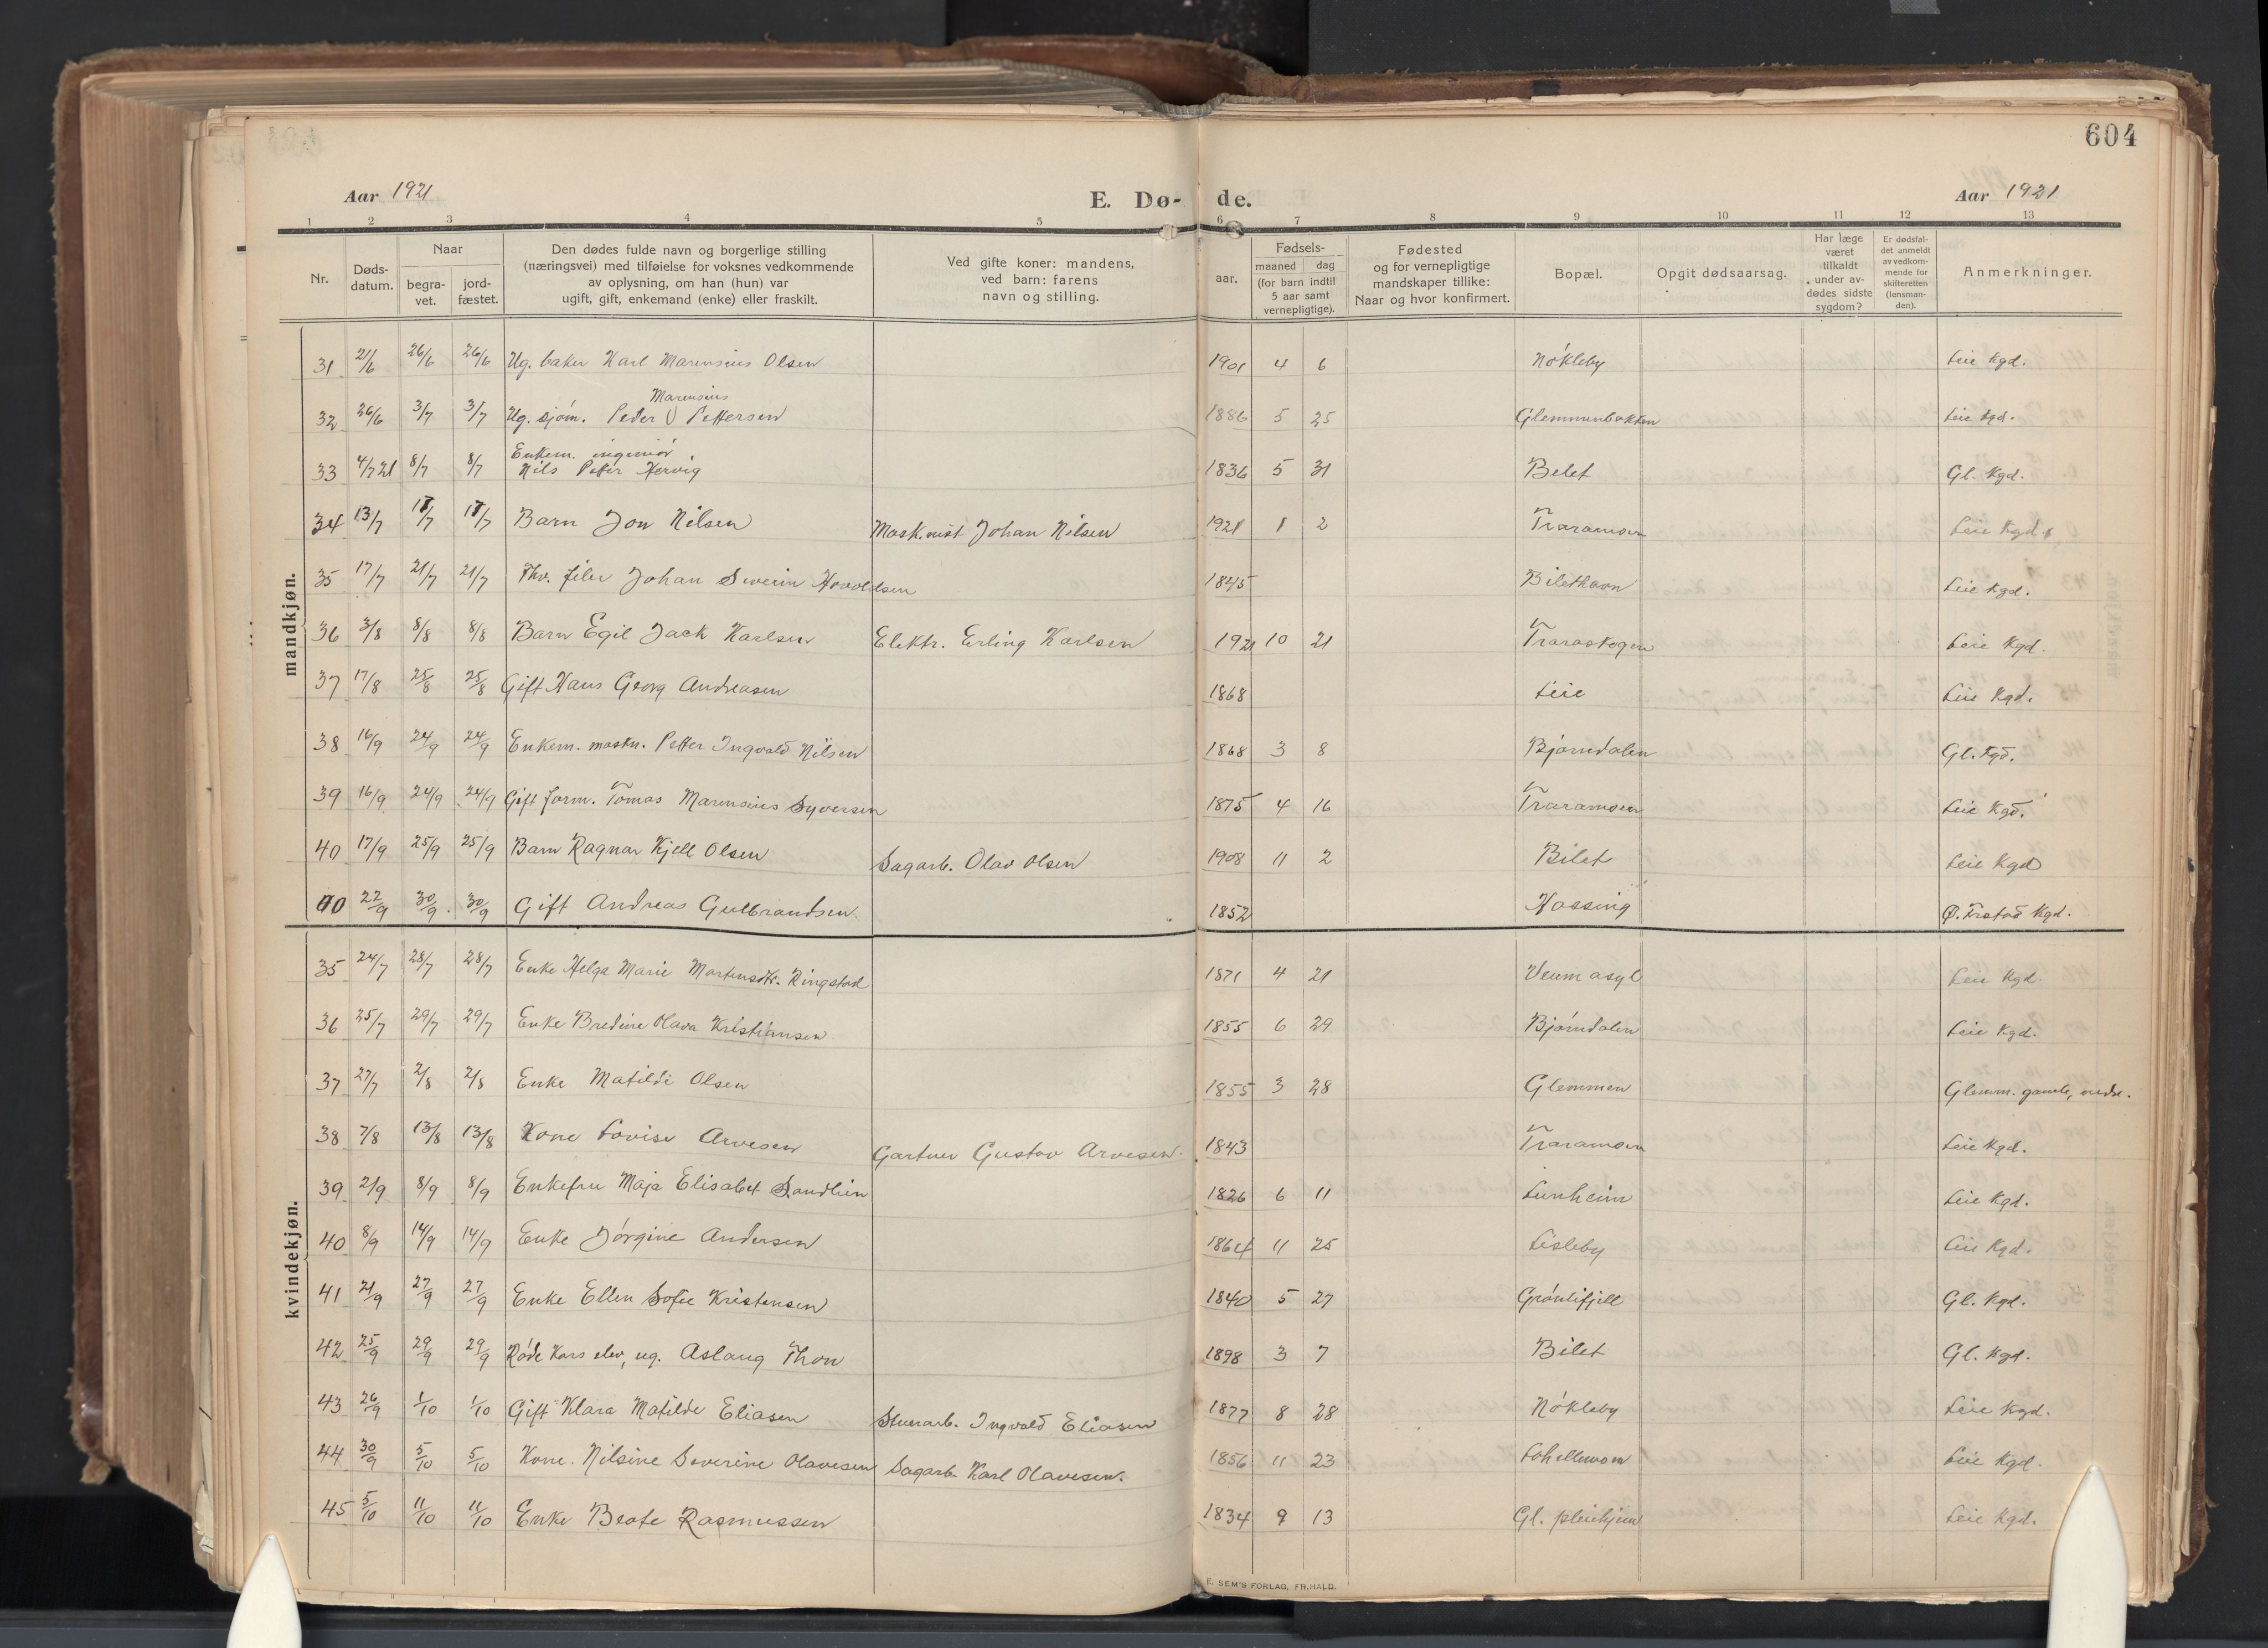 604
Aar 1921 E. Dø- de. Aar 1921
1 2 3 4 5 6 7 8 9 10 11 12 13
Nr. Døds-datum. Naar begra-vet. jord-fæstet. Den dødes fulde navn og borgerlige stilling (næringsvei) med tilføielse for voksnes vedkommende av oplysning, om han (hun) var ugift, gift, enkemand (enke) eller fraskilt. Ved gifte koner: mandens, ved barn: farens navn og stilling. Fødsels- aar. maaned dag (for barn indtil 5 aar samt vernepligtige). Fødested og for vernepligtige mandskaper tillike: Naar og hvor konfirmert. Bopæl. Opgit dødsaarsag. Har læge været tilkaldt under av-dødes sidste sygdom? Er dødsfal-det anmeldt av vedkom-mende for skifteretten (lensman-den). Anmerkninger.
mandkjøn.
31 21/6 26/6 26/6 Ug. baker Karl Marensius Olsen 1901 4 6 Nøkleby Leie Kgd.
Marensius
32 26/6 3/7 3/7 Ug. sjøm. Peder Pettersen 1886 5 25 Glemmenbakken Leie Kgd.
Enkem. ingeniør
33 4/7 21 8/7 8/7 Nils Petter Hervig 1836 5 31 Belet Gl. Kgd.
34 13/7 17/7 17/7 Barn Jon Nilsen Mask.mist Johan Nilsen 1921 1 2 Traramsen Leie Kgd.
35 17/7 21/7 21/7 Fhv. filer Johan Severin Havoldsen 1845 Bilethavn Leie Kgd.
36 3/8 8/8 8/8 Barn Egil Jack Karlsen Elektr. Erling Karlsen 1921 10 21 Traraskogen Leie Kgd.
37 17/8 25/8 25/8 Gift Hans Georg Andreasen 1868 Leie Leie Kgd.
38 16/9 24/9 24/9 Enkem. maskn. Petter Ingvald Nilsen 1868 3 8 Bjørndalen Gl. Kgd.
39 16/9 24/9 24/9 Gift form. Tomas Marensius Syversen 1875 4 16 Traramoen Leie Kgd.
40 17/9 25/9 25/9 Barn Ragnar Kjell Olsen Sagarb. Olav Olsen 1908 11 2 Bilet Leie Kgd
22/9 30/9 30/9 Gift Andreas Gulbrandsen 1852 Kassing Ø. Frstad Kgd.
kvindekjøn.
35 24/7 28/7 28/7 Enke Helga Marie Martinsdtr. Ringstad 1871 4 21 Veum asyl Leie Kgd.
36 25/7 29/7 29/7 Enke Bredine Olava Kristiansen 1855 6 29 Bjørndalen Leie Kgd.
37 27/7 2/8 2/8 Enke Matilde Olsen 1855 3 28 Glemmen Glemm. gamle, nedre.
38 7/8 13/8 13/8 Kone Lovise Arvesen Gartner Gustav Arvesen. 1843 Traramoen Leie Kgd.
39 2/9 8/9 8/9 Enkefru Maja Elisabet Sandlien 1826 6 11 Lunheim Leie Kgd.
40 8/9 14/9 14/9 Enke Jørgine Andersen 1864 11 25 Lisleby Leie Kgd.
41 21/9 27/9 27/9 Enke Ellen Sofie Kristensen 1840 5 27 Grønlifjell Gl. Kgd.
42 25/9 29/9 29/9 Røde Kors elev, ug. Aslaug Thon 1898 3 7 Bilet Gl. Kgd.
43 26/9 1/10 1/10 Gift Klara Matilde Eliasen Stuerarb. Ingvald Eliasen 1877 8 28 Nøkleby Leie Kgd.
44 30/9 5/10 5/10 Kone. Nilsine Severine Olavesen Sagarb. Karl Olavesen. 1856 11 23 Leie Kgd.
45 5/10 11/10 11/10 Enke Beate Rasmussen 1834 9 13 Gl. pleiehjem Leie Kgd.
E. SEM'S FORLAG, FR.HALD.